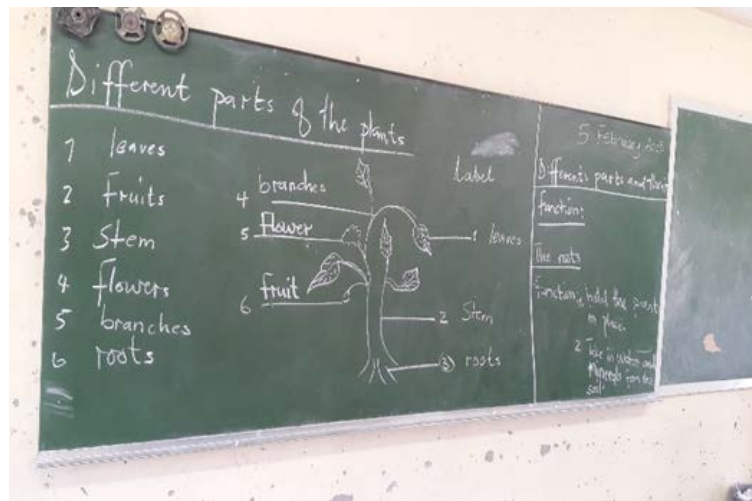 Different parts of the plants
1 leaves
2 Fruits
3 Stem
4 flowers
5 branches
6 roots
Label
4 branches
5 flower
6 fruit
1 leaves
2 Stem
3 roots
5 February
Differents parts and their
function:
The roots
Function: hold the plant
in place.
2 Take in water and
minerals from the
soil